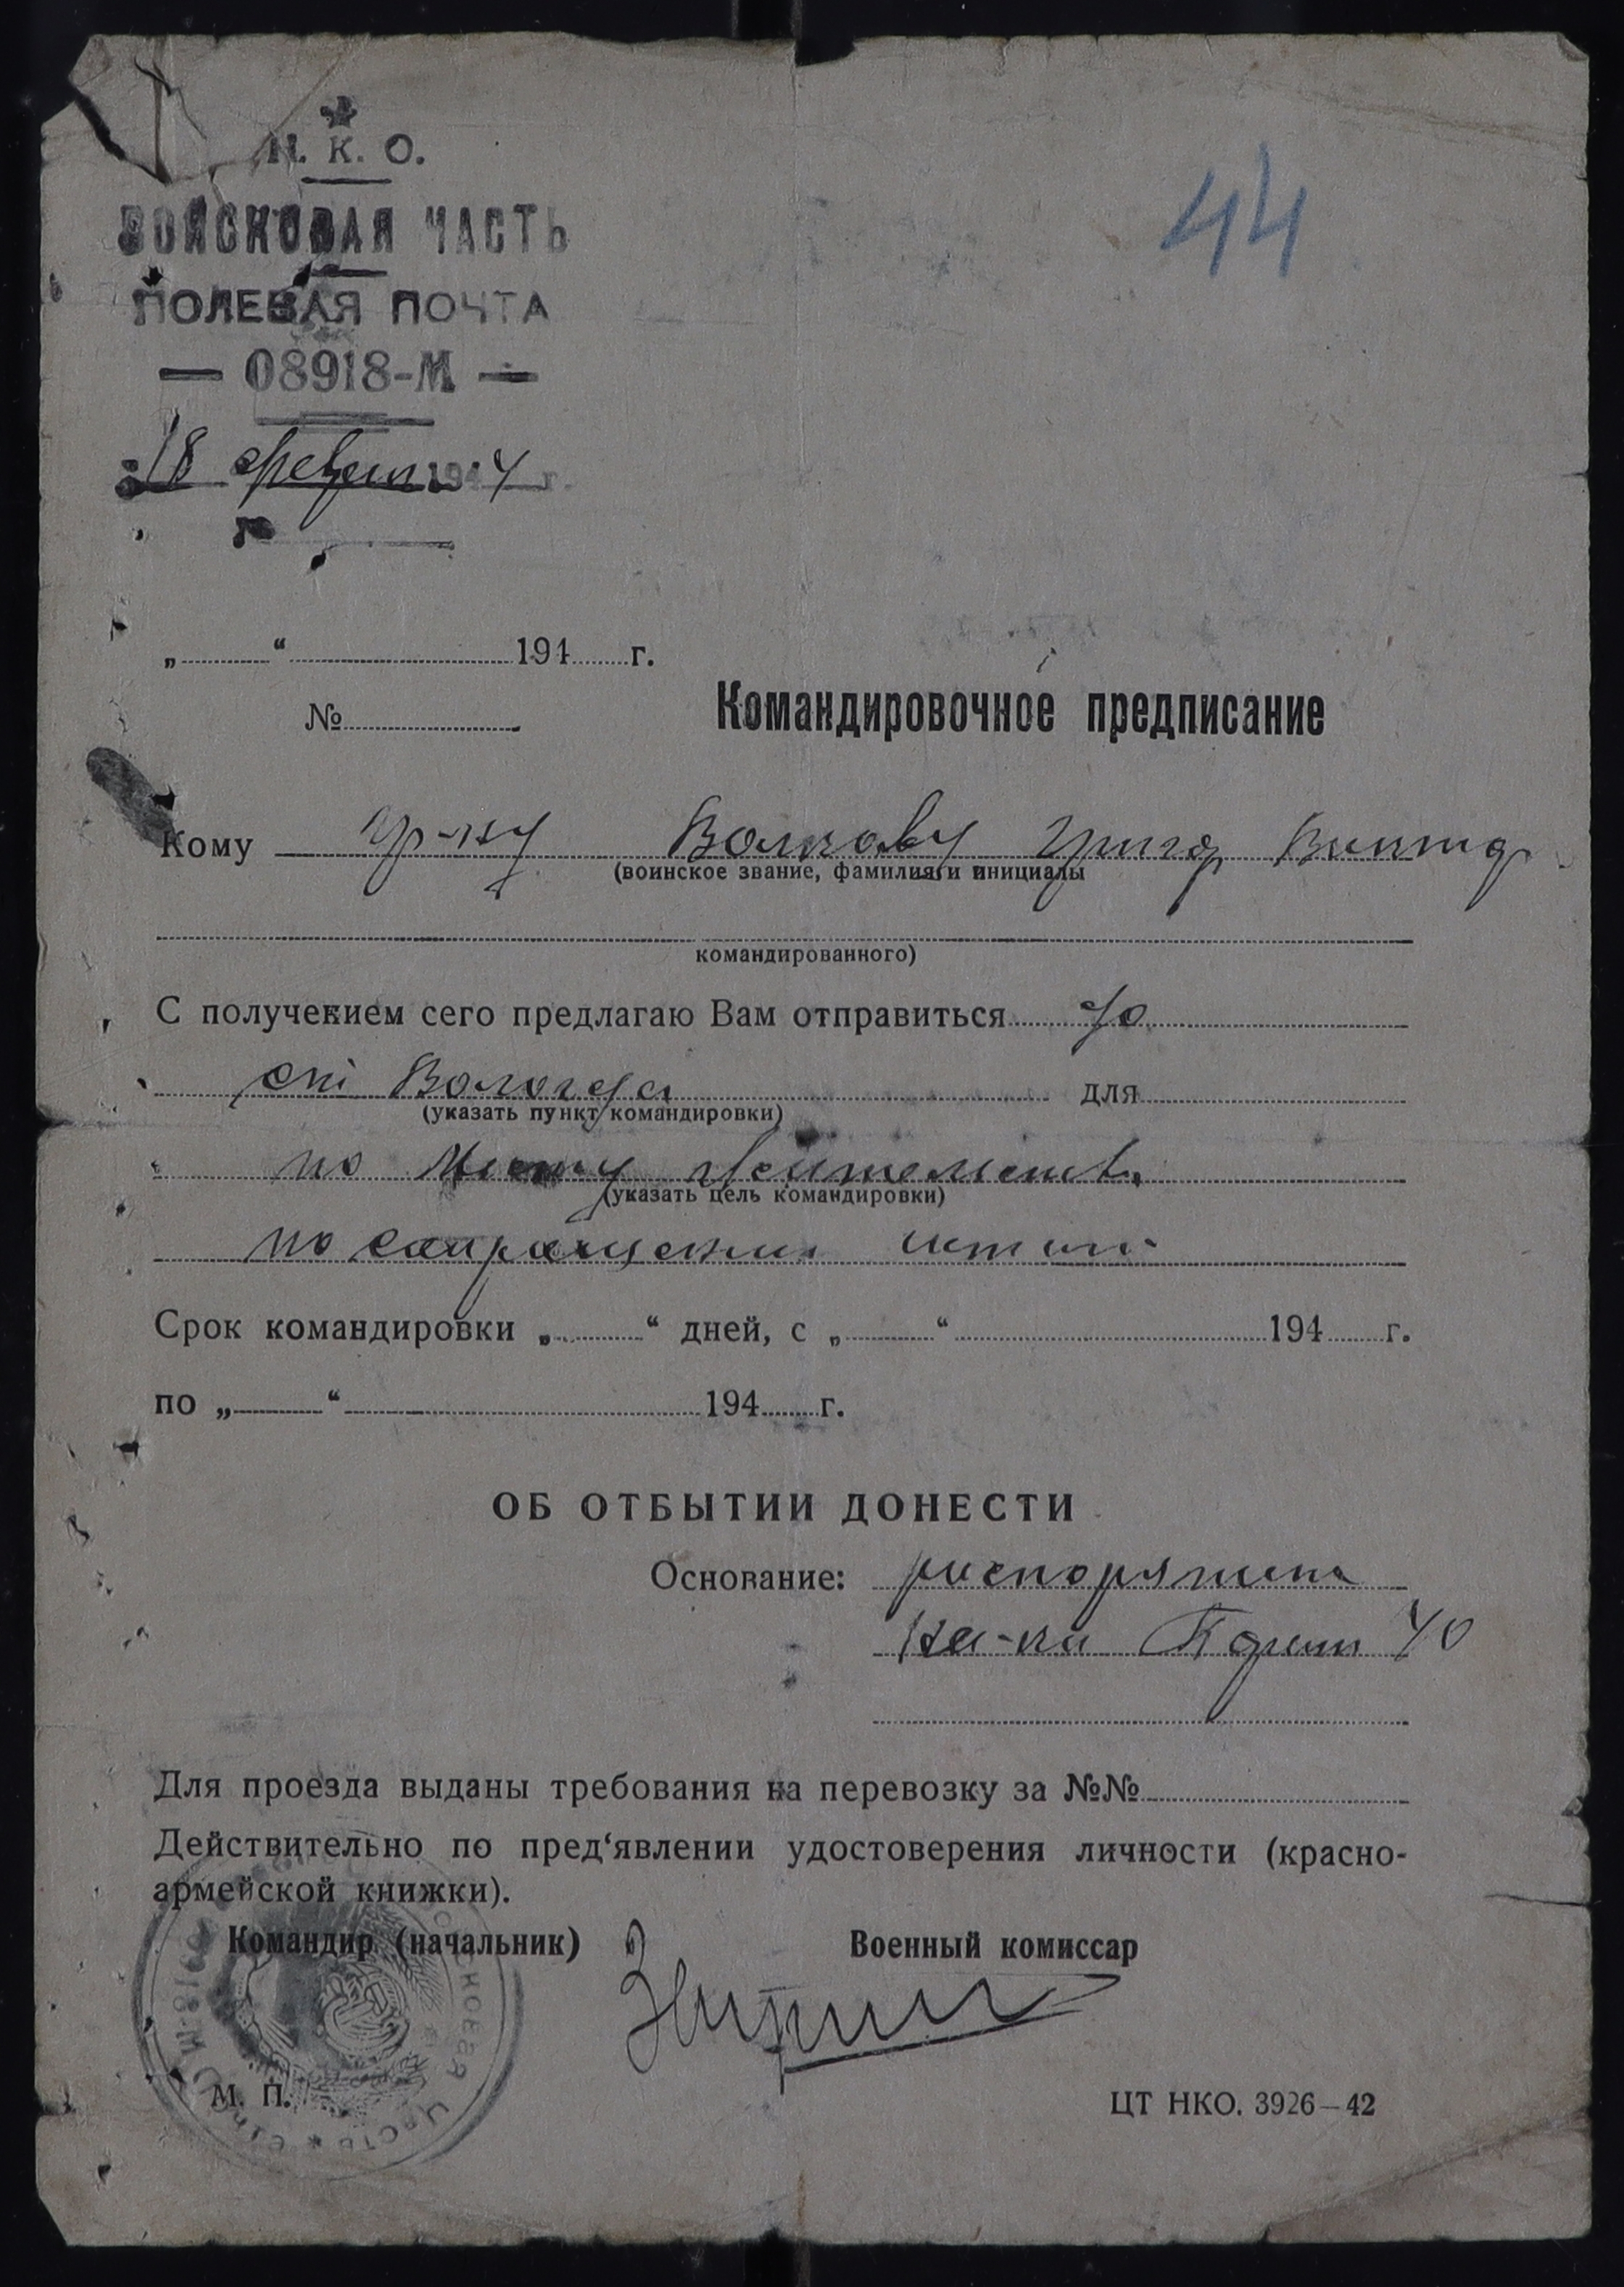 Н. К. О.
44
ВОЙСКОВАЯ ЧАСТЬ
ПОЛЕВАЯ ПОЧТА
— 08918-М —
18 1944 г.
„ “ 194 г.
№
Командировочное предписание
Кому гр-ну Волкову Григор Виктор
(воинское звание, фамилия и инициалы
командированного)
С получением сего предлагаю Вам отправиться до
ст Вологда для
(указать пункт командировки)
по месту жительств
(указать цель командировки)
по сокращении штат
Срок командировки „ “ дней, с „ “ 194 г.
по „ “ 194 г.
ОБ ОТБЫТИИ ДОНЕСТИ
Основание: распоряжен
на-ка 40
Для проезда выданы требования на перевозку за №№
Действительно по пред‘явлении удостоверения личности (красно-
армейской книжки).
Командир (начальник) Военный комиссар
М. П.
ЦТ НКО. 3926—42